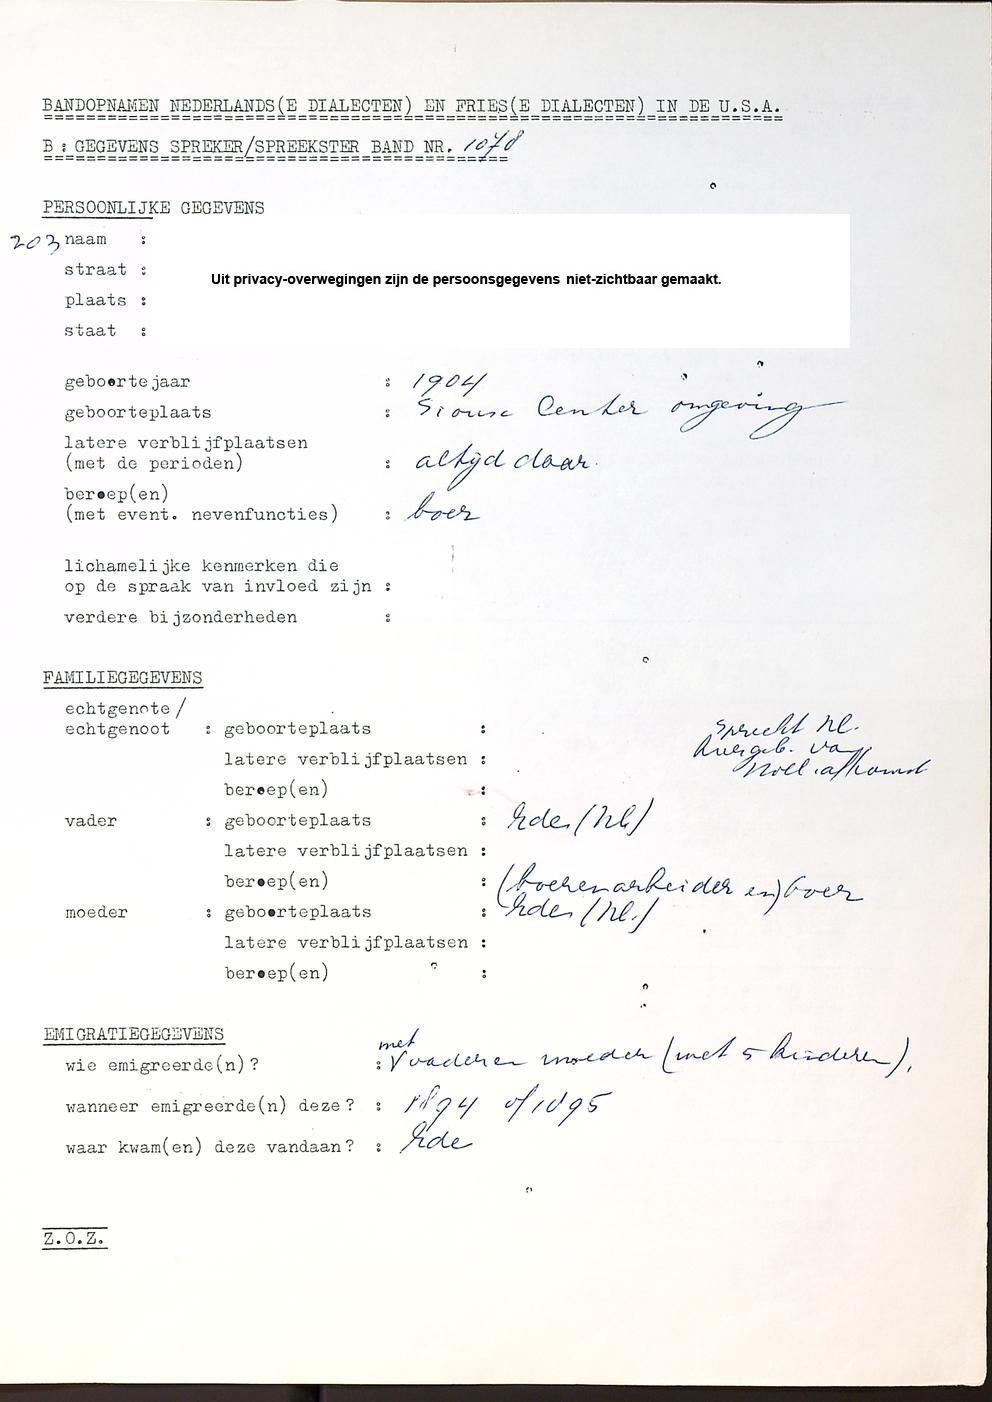 BANDOPNAMEN NEDERLANDS(E DIALECTEN) EN FRIES(E DIALECTEN) IN DE U.S.A.
B : GEGEVENS SPREKER/SPREEKSTER BAND NR. 1078
PERSOONLIJKE GEGEVENS
203 naam :
straat :
Uit privacy-overwegingen zijn de persoonsgegevens niet-zichtbaar gemaakt.
plaats :
staat :
geboortejaar : 1904
geboorteplaats : Sioux Center omgeving
latere verblijfplaatsen
(met de perioden) : altijd daar.
beroep(en)
(met event. nevenfuncties) : boer
lichamelijke kenmerken die
op de spraak van invloed zijn :
verdere bijzonderheden :
FAMILIEGEGEVENS
echtgenote/
echtgenoot : geboorteplaats :
spreekt Nl.
hier geb. van
Holl. afkomst
latere verblijfplaatsen :
beroep(en) :
vader : geboorteplaats : Ede (Nl)
latere verblijfplaatsen :
beroep(en) : (boerenarbeider en) boer
moeder : geboorteplaats : Ede (Nl.)
latere verblijfplaatsen :
beroep(en) :
EMIGRATIEGEGEVENS
met
wie emigreerde(n)? : Vader en moeder (met 5 kinderen),
wanneer emigreerde(n) deze? : 1894 of 1895
waar kwam(en) deze vandaan? : Ede
Z.O.Z.